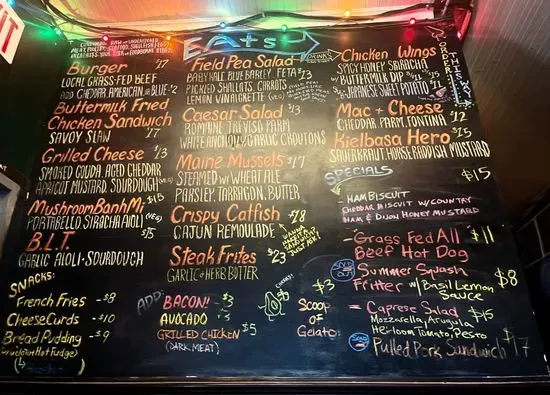 EXIT
CONSUMING RAW OR UNDERCOOKED
MEAT, POULTRY, SEAFOOD, SHELLFISH, EGGS
INCREASES YOUR RISK OF FOODBORNE ILLNESS
EATS!
DRINKS
ORDER THIS WAY
Burger $17
LOCAL GRASS-FED BEEF
ADD CHEDDAR, AMERICAN, OR BLUE - $2
Buttermilk Fried
Chicken Sandwich
SAVOY SLAW $17
Grilled Cheese $13
SMOKED GOUDA, AGED CHEDDAR
APRICOT MUSTARD, SOURDOUGH (VEG)
Mushroom Banh Mi (VEG)
PORTOBELLO, SRIRACHA AIOLI $15
B.L.T.
GARLIC AIOLI - SOURDOUGH
SNACKS:
French Fries - $8
Cheese Curds - $10
Bread Pudding - $9
(w/ Hot Fudge)
Field Pea Salad $13
BABY KALE, BLUE BARLEY, FETA
PICKED SHALLOTS, CARROTS
LEMON VINAIGRETTE (VEG)
Caesar Salad $13
ROMAINE, TREVISO, PARM
WHITE ANCHOVY, GARLIC CROUTONS
Maine Mussels $17
STEAMED w/ WHEAT ALE
PARSLEY, TARRAGON, BUTTER
Crispy Catfish $18
CAJUN REMOULADE
Steak Frites $23
GARLIC + HERB BUTTER
ADD:
BACON! - $3
AVOCADO - $3
GRILLED CHICKEN $5
(DARK MEAT)
$3
SCOOP
OF
Gelato
Chicken Wings
SPICY HONEY SRIRACHA
w/ BUTTERMILK DIP
JAPANESE SWEET POTATO
Mac + Cheese $12
CHEDDAR, PARM, FONTINA
Kielbasa Hero $15
SAUERKRAUT, HORSERADDISH, MUSTARD
SPECIALS
$15
- HAM BISCUIT
CHEDDAR BISCUIT w/ COUNTRY
HAM & DIJON HONEY MUSTARD
- Grass Fed All $11
Beef Hot Dog
SOLD OUT
Summer Squash $8
Fritter w/ Basil Lemon
Sauce
- Caprese Salad $15
Mozzarella, Arugula,
Heirloom Tomato, Pesto
Pulled Pork Sandwich $17